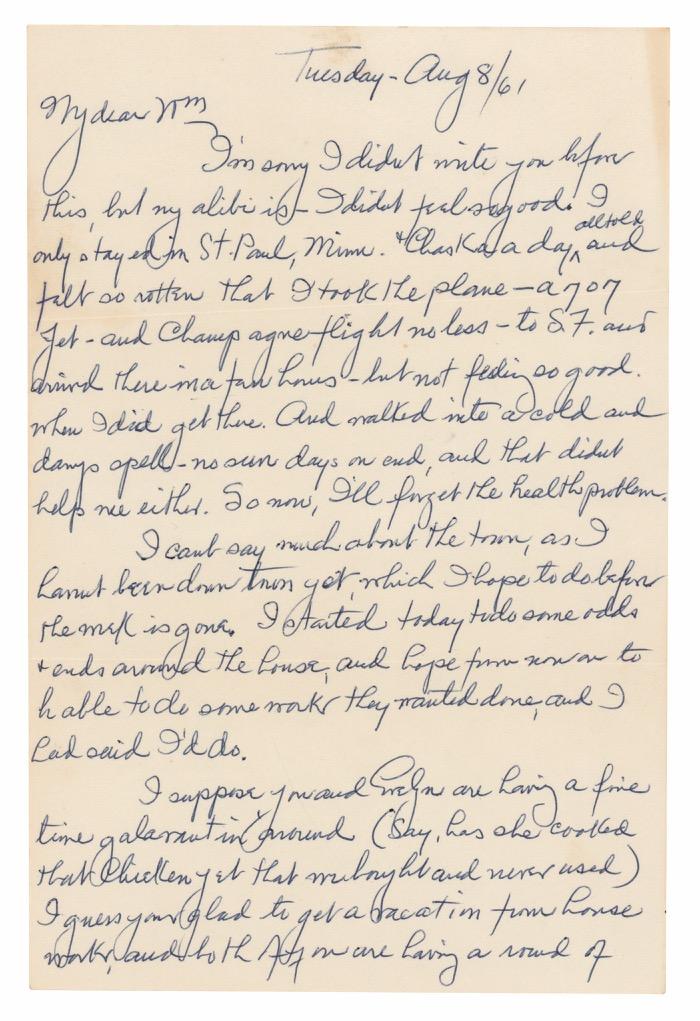 Tuesday - Aug 8/61
My dear Wm
I'm sorry I didn't write you before
this, but my alibi is - I didn't feel so good. I
only stayed in St. Paul, Minn. & Chaska a day all told and
felt so rotten that I took the plane - a 707
Jet - and Champagne flight no less - to S.F. and
arrived there in a few hours - but not feeling so good.
when I did get there. And walked into a cold and
damp spell - no sun days on end, and that didn't
help me either. So now, I'll forget the health problem.
I can't say much about the town, as I
havnt been down town yet, which I hope to do before
the week is gone. I started today to do some odds
& ends around the house, and hope from now on to
be able to do some work they wanted done, and I
had said I'd do.
I suppose you and Evelyn are having a fine
time galavantin' around (Say, has she cooked
that Chicken yet that we bought and never used)
I guess your glad to get a vacation from house
work, and both of you are having a round of